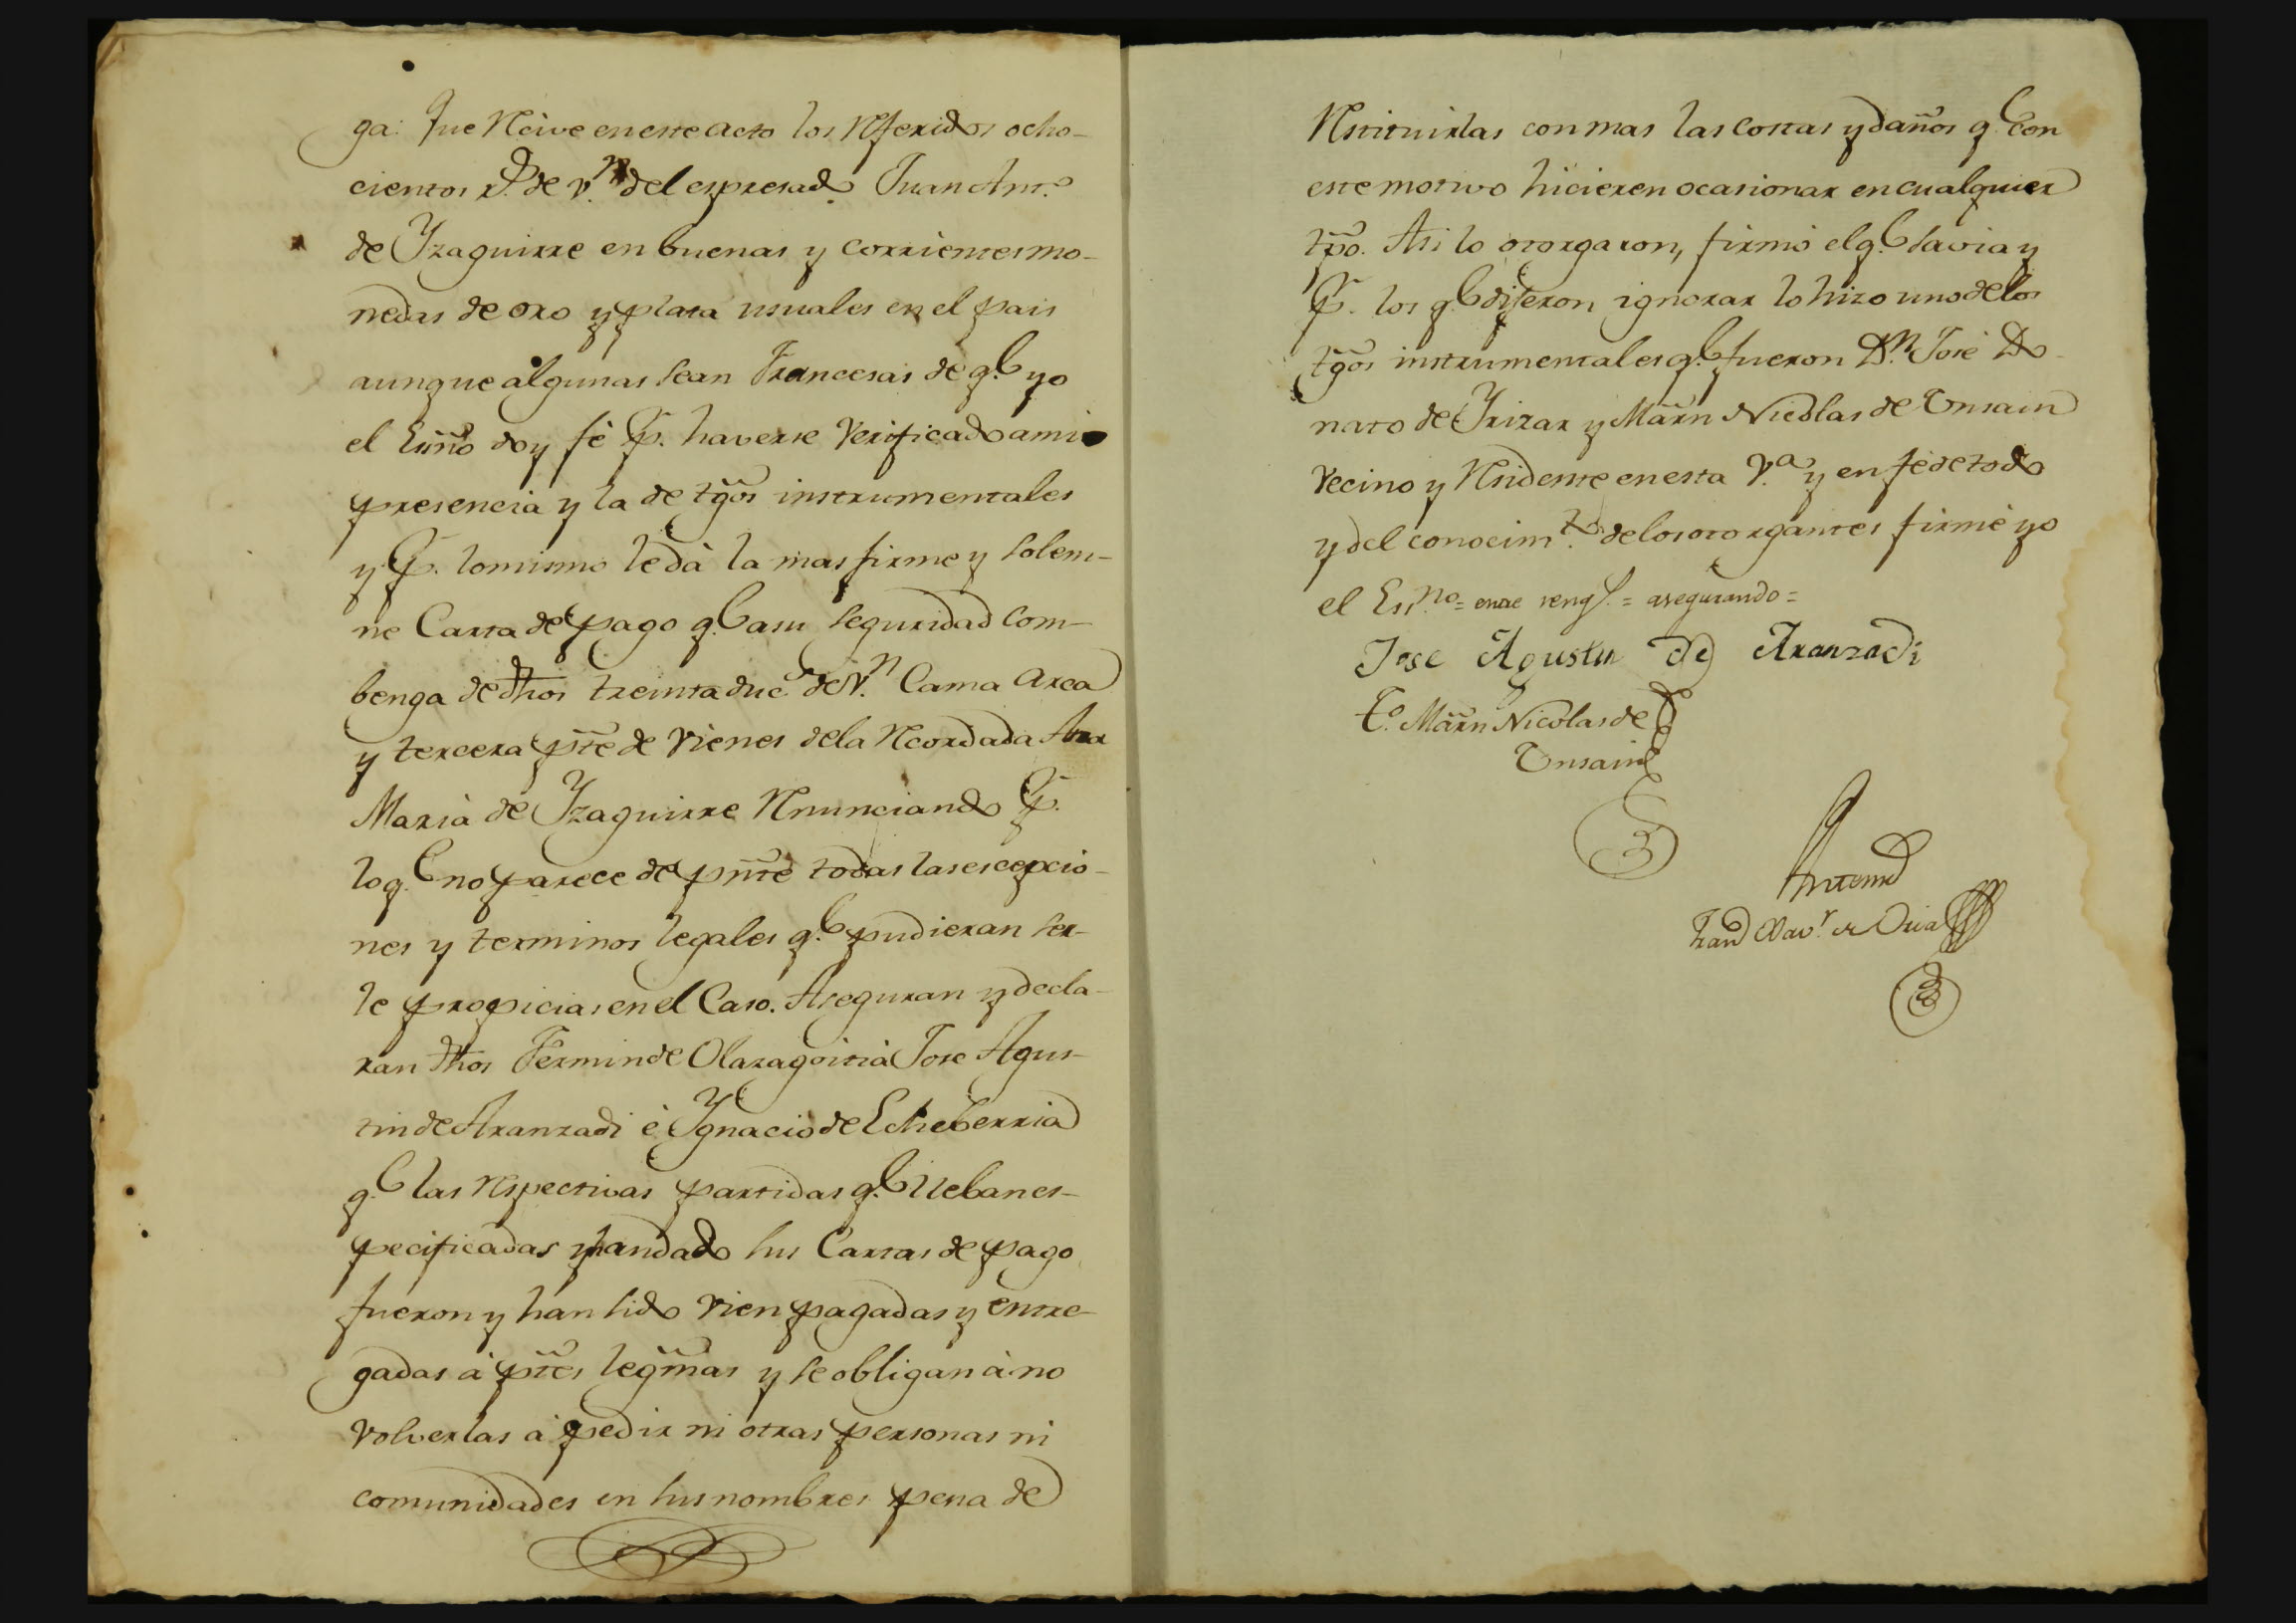 ga: que Recive en este acto los Referidos ocho-
cientos r.s de v.n del espresado Juan Ant.o
de Yzaguirre en buenas y corrientes mo-
nedas de oro y plata usuales en el pais
aunque algunas sean Francesas de q.e yo
el Essño doy fé p.r haverse Verificado a mi
presencia y la de tgõs instrumentales
y p.r lo mismo le dà la mas firme y solem-
ne Carta de pago q.e a su seguridad com-
benga de dhos treinta duc.s de v.n Cama Arca
y tercera pte de vienes de la Recordada Ana
Maria de Yzaguirre Renunciando p.r
lo q.e no parece de pnte todas las escepcio-
nes y terminos legales q.e pudieran ser-
le propicias en el Caso. Aseguran y decla-
ran dhos Fermin de Olazagoitia Jose Agus-
tin de Aranzadi è Ygnacio de Echeberria
q.e las Respectivas partidas q.e lleban es-
pecificadas y han dado sus Cartas de pago
fueron y han sido vien pagadas y entre-
gadas à ptes legmas y se obligan à no
volverlas à pedir ni otras personas ni
comunidades en sus nombres pena de
Restituirlas con mas las costas y daños q.e con
este motivo hicieren ocasionar en cualquier
tpo. Asi lo otorgaron, firmó el q.e savia y
p.r los q.e dijeron ignorar lo hizo uno de los
tgõs instrumentales q.e fueron D.n José Do-
nato de Yrizar y Marn Nicolas de Unsain
vecino y Residente en esta V.a y en fé de todo
y del conocim.to de los otorgantes firmé yo
el Ess.no = entre reng.s = asegurando =
Jose Agustin de Aranzadi
t.o Marn Nicolas de
Unsain
Antemi
Fran.co Xav.r de Oria